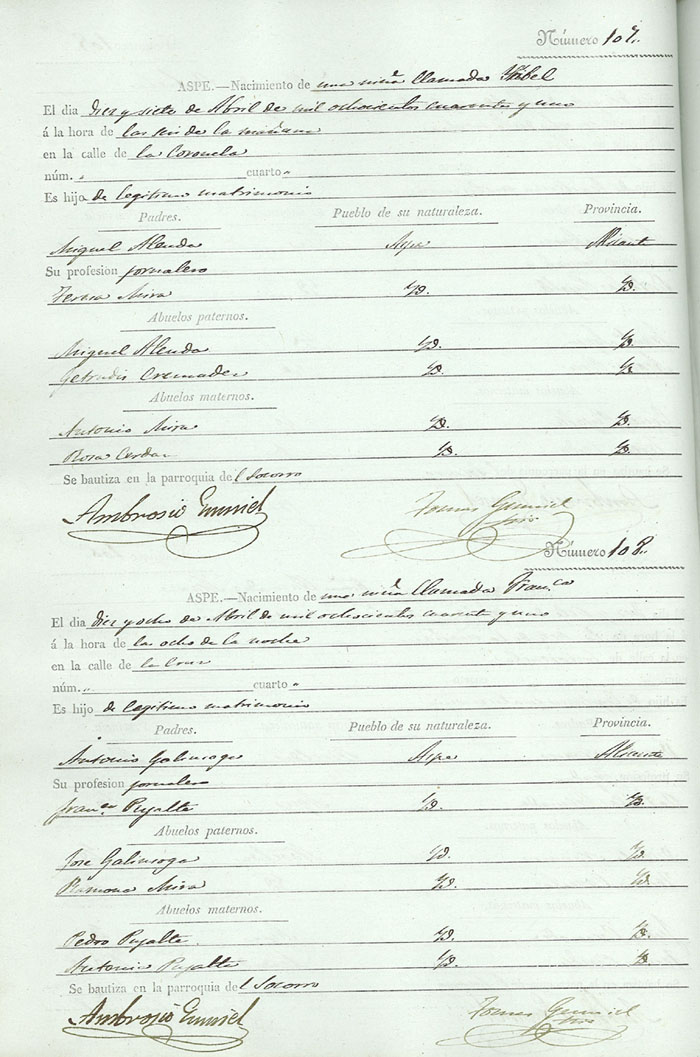 Número 107.
ASPE.—Nacimiento de una niña llamada Ysabel
El dia diez y siete de Abril de mil ochocientos cuarenta y uno
á la hora de las seis de la mañana
en la calle de la Coronela
núm. " cuarto "
Es hijo de legitimo matrimonio
Padres. Pueblo de su naturaleza. Provincia.
Miguel Alenda Aspe Alicante
Su profesion jornalero
Teresa Mira Yd. Yd.
Abuelos paternos.
Miguel Alenda Yd. Yd.
Getrudis Cremades Yd. Yd.
Abuelos maternos.
Antonio Mira Yd. Yd.
Rosa Cerdan Yd. Yd.
Se bautiza en la parroquia del Socorro
Ambrosio Tomas
Número 108.
ASPE.—Nacimiento de una niña llamada Fran.ca
El dia diez y ocho de Abril de mil ochocientos cuarent y uno
á la hora de las ocho de la noche
en la calle de la Cruz
núm. " cuarto "
Es hijo de legitimo matrimonio
Padres. Pueblo de su naturaleza. Provincia.
Antonio Galinsoga Aspe Alicante
Su profesion jornalero
Fran.ca Pujalte Yd. Yd.
Abuelos paternos.
Jose Galinsoga Yd. Yd.
Ramona Mira Yd. Yd.
Abuelos maternos.
Pedro Pujalte Yd. Yd.
Antonia Pujalte Yd. Yd.
Se bautiza en la parroquia del Socorro
Ambrosio Tomas